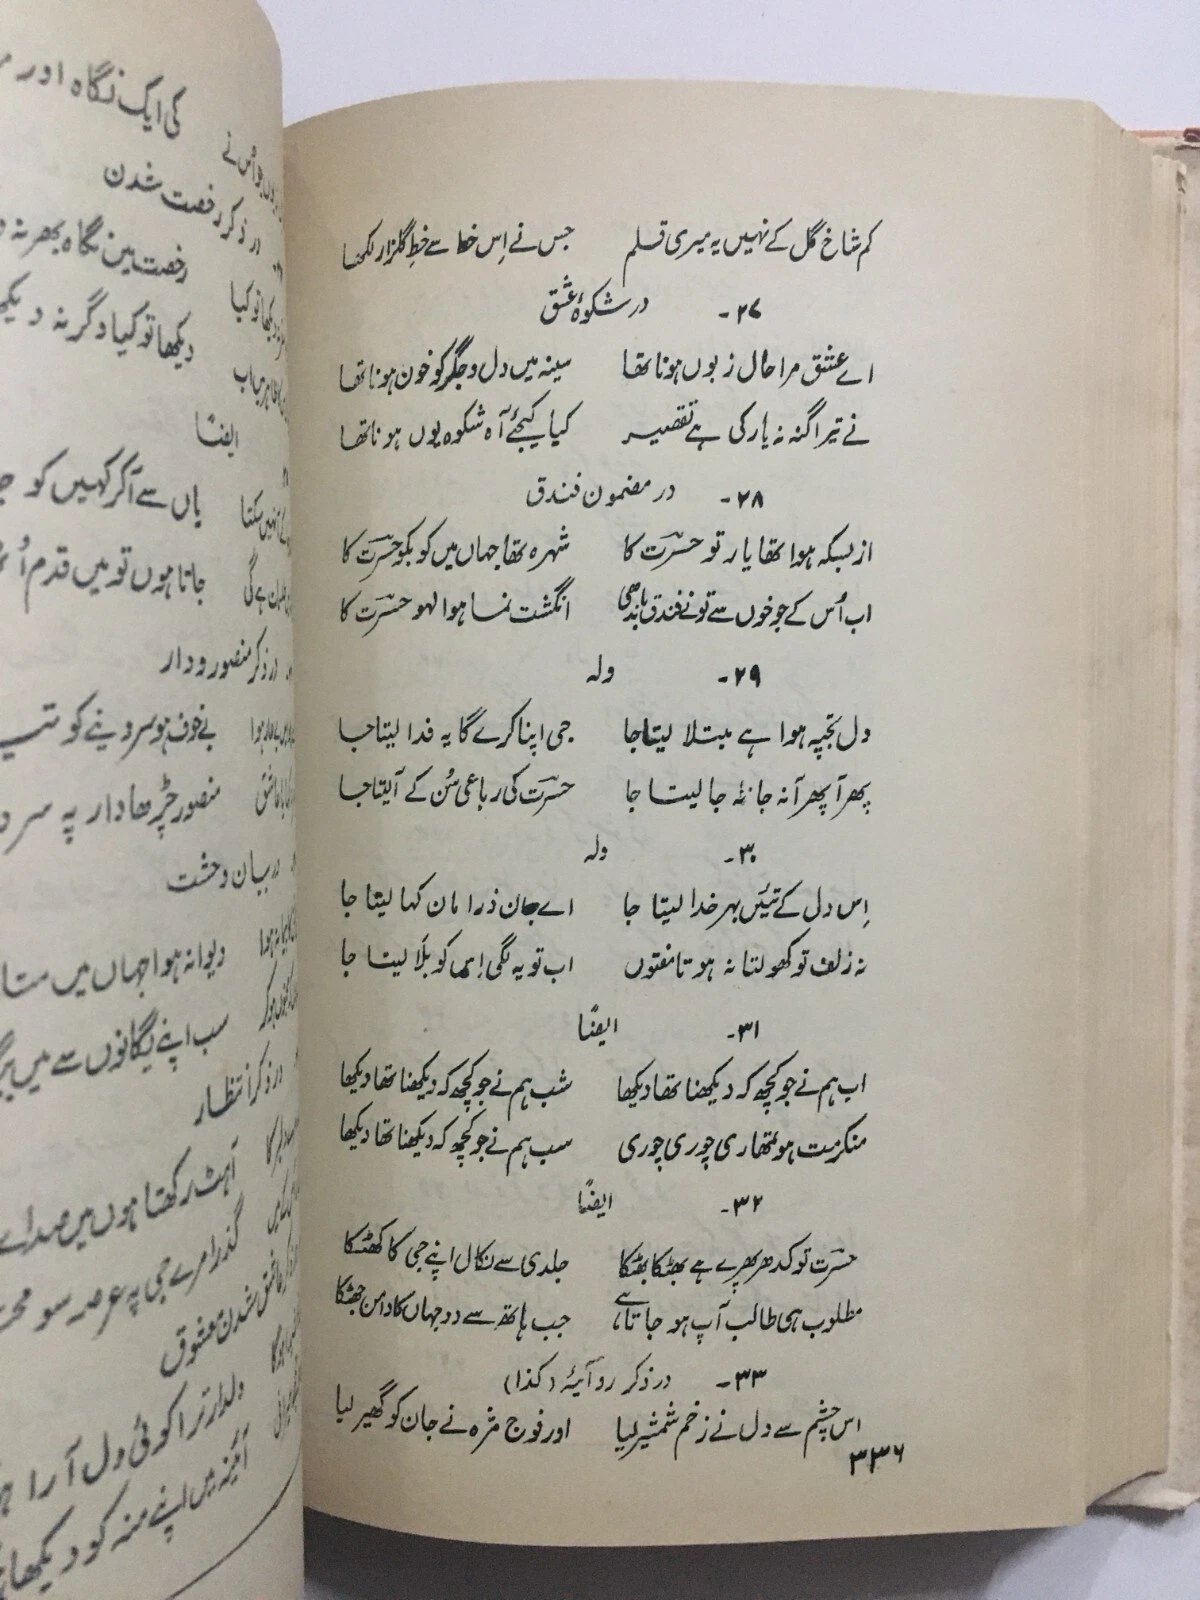 کی ایک نگاہ اور
در ذکر رخصت شدن
رخصت میں نگاہ بھر نہ
دیکھا تو کیا وگر نہ
ایضاً
یاں سے آکر کہیں کو
جاتا ہوں تو میں قدم
در ذکر منصور و دار
بے خوف ہو سر دینے کو
منصور چڑھا دار پہ سر
در بیان وحشت
دیوانہ ہوا جہاں میں
سب اپنے یگانوں سے میں
در ذکر انتظار
آہٹ رکھتا ہوں میں صدائے
گذرا مرے جی پہ عرصہ سو
عاشق شدن معشوق
دلدار ترا کوئی دل آرا
آئینہ میں اپنے منہ کو دیکھا
کم شاخ گل کے نہیں یہ میری قلم جس نے اِس خط سے خطِ گلزار لکھا
۲۷- در شکوۂ عشق
اے عشق مرا حال زبوں ہونا تھا سینہ میں دل و جگر کو خون ہونا تھا
نے تیرا گنہ نہ یار کی ہے تقصیر کیا کیجئے آہ شکوہ یوں ہونا تھا
۲۸- در مضمون فندق
ازبسکہ ہوا تھا یار تو حسرت کا شہرہ تھا جہاں میں کو بکو حسرت کا
اب اُس کے جو خوں سے تو نے فندق باندھی انگشت نما ہوا لہو حسرت کا
۲۹- ولہ
دل تجھپہ ہوا ہے مبتلا لیتا جا جی اپنا کرے گا یہ فدا لیتا جا
پھر آ پھر آ نہ جا نہ جا لیتا جا حسرت کی رباعی سُن کے آ لیتا جا
۳۰- ولہ
اِس دل کے تئیں بہر خدا لیتا جا اے جان ذرا مان کہا لیتا جا
نہ زلف تو کھولتا نہ ہوتا مفتوں اب تو یہ لگی اِس کو بَلا لیتا جا
۳۱- ایضاً
اب ہم نے جو کچھ کہ دیکھنا تھا دیکھا شب ہم نے جو کچھ کہ دیکھنا تھا دیکھا
منکر مت ہو تمھاری چوری چوری سب ہم نے جو کچھ کہ دیکھنا تھا دیکھا
۳۲- ایضاً
حسرت تو کدھر پھرے ہے بھٹکا بھٹکا جلدی سے نکال اپنے جی کا کھٹکا
مطلوب ہی طالب آپ ہو جاتا ہے جب ہاتھ سے دو جہاں کا دامن جھٹکا
۳۳- در ذکر رو آئیۂ (کذا)
اس چشم سے دل نے زخم شمشیر لیا اور فوج مژہ نے جان کو گھیر لیا
۳۳۶